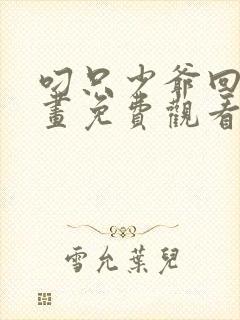 叼只少爺回
畫免費觀看
雪允葉兒